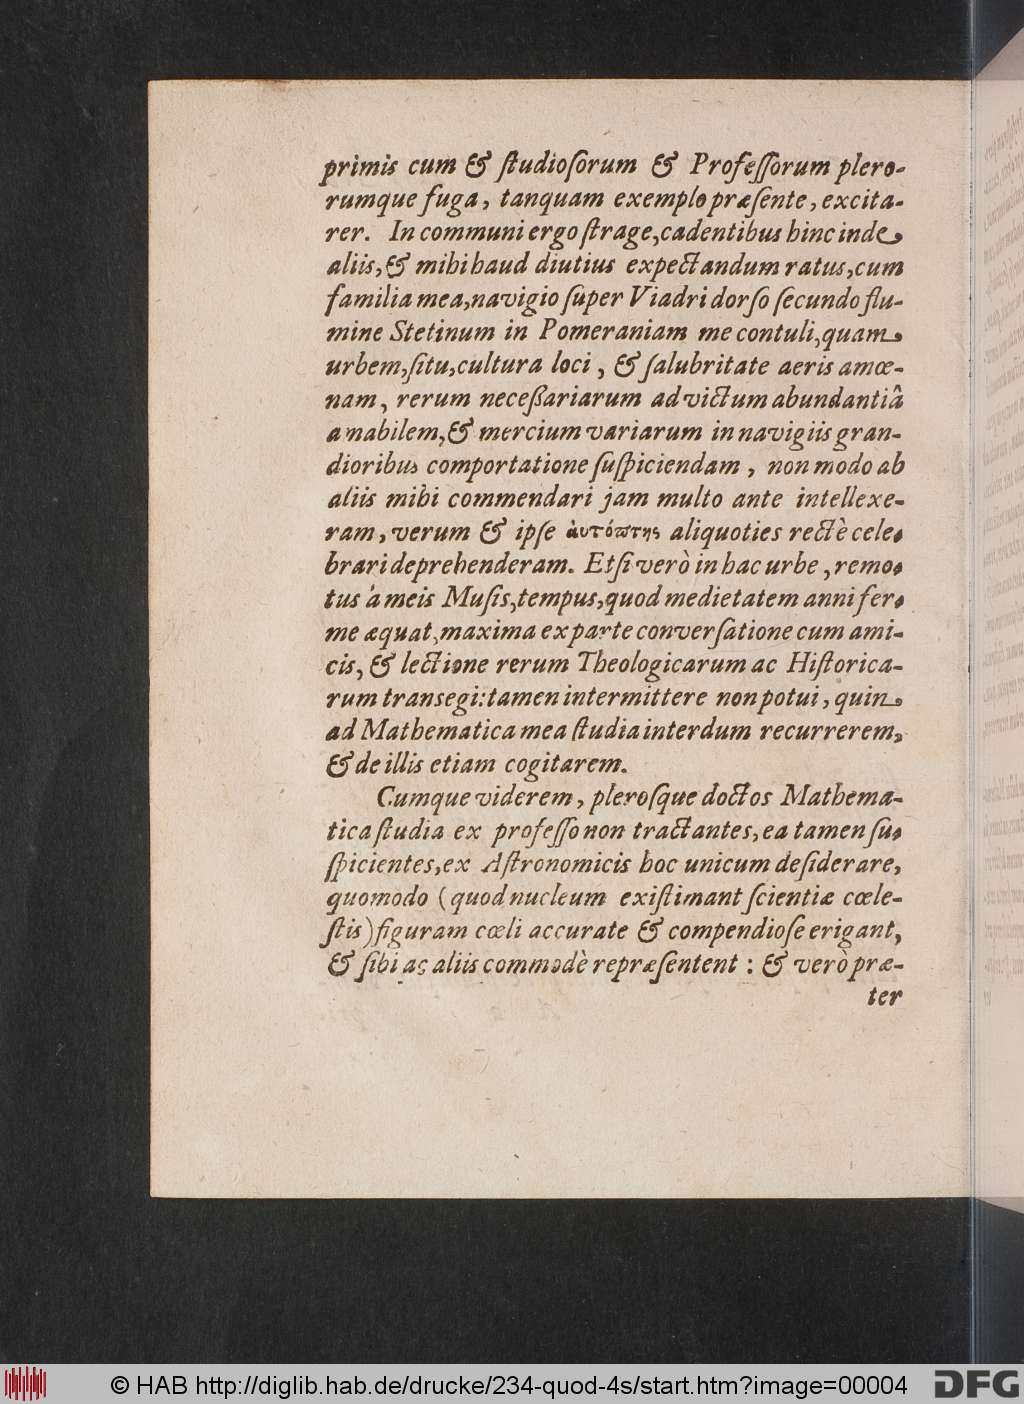 primis cum & ſtudioſorum & Profeſſorum plero-
rumque fuga, tanquam exemplo præſente, excita-
rer. In communi ergo ſtrage, cadentibus hinc inde
aliis, & mihi haud diutius expectandum ratus, cum
familia mea, navigio ſuper Viadri dorſo ſecundo flu-
mine Stetinum in Pomeraniam me contuli, quam
urbem, ſitu, cultura loci, & ſalubritate aeris amœ-
nam, rerum neceßariarum ad victum abundantiâ
amabilem, & mercium variarum in navigiis gran-
dioribus comportatione ſuſpiciendam, non modo ab
aliis mihi commendari jam multo ante intellexe-
ram, verum & ipſe ἀυτόπτης aliquoties rectè cele-
brari deprehenderam. Etſi verò in hac urbe, remo-
tus à meis Muſis, tempus, quod medietatem anni fer-
me æquat, maxima ex parte converſatione cum ami-
cis, & lectione rerum Theologicarum ac Hiſtorica-
rum transegi: tamen intermittere non potui, quin
ad Mathematica mea ſtudia interdum recurrerem,
& de illis etiam cogitarem.
Cumque viderem, plerosque doctos Mathema-
tica ſtudia ex profeſſo non tractantes, ea tamen ſu-
ſpicientes, ex Aſtronomicis hoc unicum deſiderare,
quomodo (quod nucleum exiſtimant ſcientiæ cœle-
ſtis) figuram cœli accurate & compendioſe erigant,
& ſibi ac aliis commodè repræſentent: & verò præ-
ter
© HAB http://diglib.hab.de/drucke/234-quod-4s/start.htm?image=00004
DFG